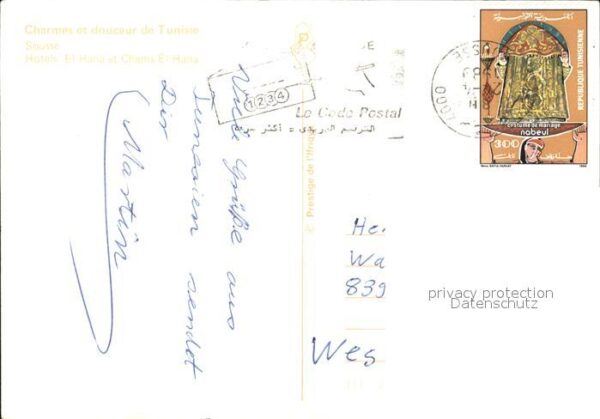 Charmes et douceur de Tunisie
Sousse
Hotels: El Hana et Chams El Hana
Viele Grüße aus
Tunesien sendet
Dir
Martin
1234
Le Code Postal
© Prestige de l'Afrique
He.
Wa
839
Wes
privacy protection
Datenschutz
REPUBLIQUE TUNISIENNE
costume de mariage
nabeul
300